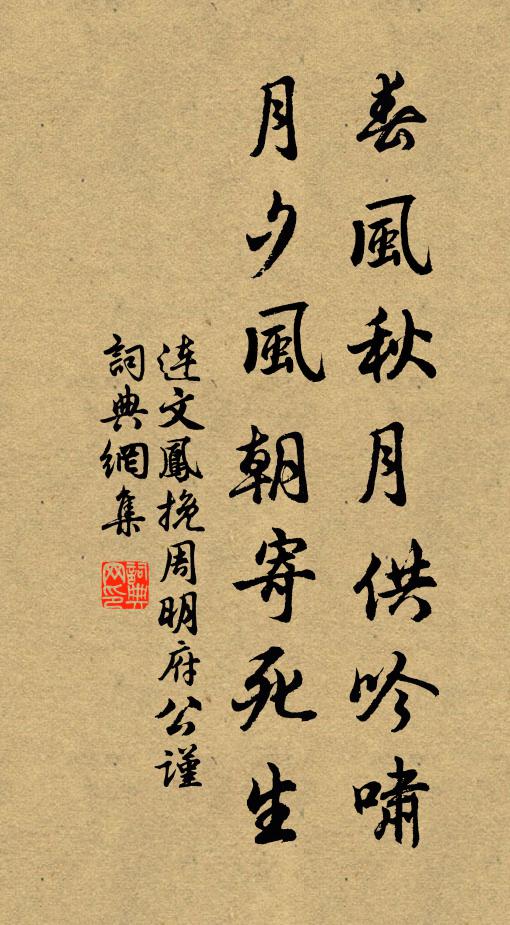 春風秋月供吟嘯
月夕風朝寄死生
連文鳳挽周明府公謹
詞典網集
詞典網印